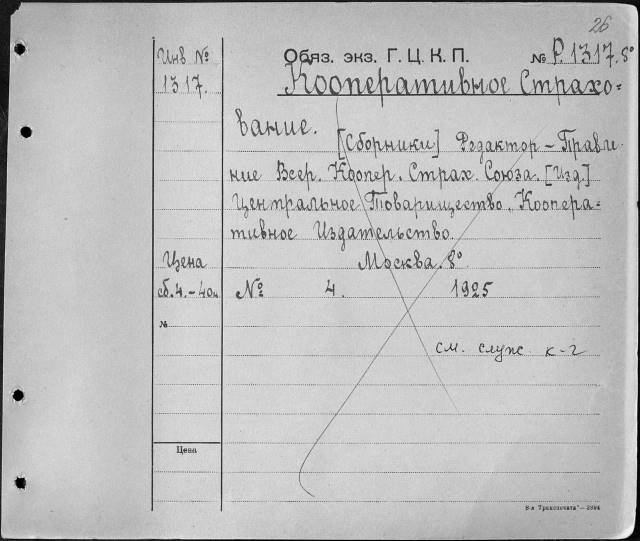 26
Инв №
Обяз. экз. Г. Ц. К. П.
№ Р. 1317. 8°
1317.
Кооперативное Страхо=
вание.
[Сборники] Редактор – Правле
ние Всер. Коопер. Страх. Союза. [Изд.]
Центральное Товарищество „Коопера=
тивное Издательство.
Цена
Москва. 8°
сб. 4. – 40к
№ 4. 1925
№
см. служ к-г
Цена
8-я "Транспечати" – 2894